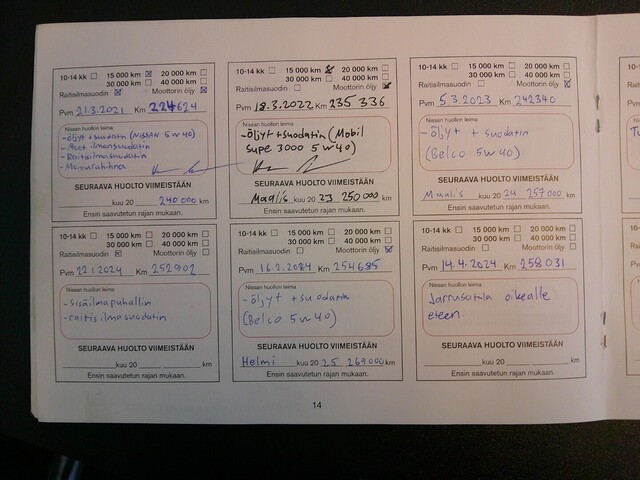 10-14 kk ☐ 15 000 km ☒ 20 000 km ☐
30 000 km ☐ 40 000 km ☐
Raitisilmasuodin ☒ Moottorin öljy ☒
Pvm 21.3.2021 Km 224624
Nissan huollon leima
-öljyt+suodatin (NISSAN 5w40)
- Raitisilmasuodatin
SEURAAVA HUOLTO VIIMEISTÄÄN
kuu 20 240 000 km
Ensin saavutetun rajan mukaan.
10-14 kk ☐ 15 000 km ☒ 20 000 km ☐
30 000 km ☐ 40 000 km ☐
Raitisilmasuodin ☐ Moottorin öljy ☒
Pvm 18.3.2022 Km 235 336
Nissan huollon leima
-öljyt+suodatin (Mobil
supe 3000 5w40)
SEURAAVA HUOLTO VIIMEISTÄÄN
Maalis kuu 20 23 250 000 km
Ensin saavutetun rajan mukaan.
10-14 kk ☐ 15 000 km ☐ 20 000 km ☐
30 000 km ☐ 40 000 km ☐
Raitisilmasuodin ☐ Moottorin öljy ☒
Pvm 5.3.2023 Km 242340
Nissan huollon leima
-öljyt + suodatin
(Belco 5w40)
SEURAAVA HUOLTO VIIMEISTÄÄN
Maalis kuu 20 24 257 000 km
Ensin saavutetun rajan mukaan.
10-14 kk ☐ 15 000 km ☐ 20 000 km ☐
30 000 km ☐ 40 000 km ☐
Raitisilmasuodin ☒ Moottorin öljy ☐
Pvm 22.1.2024 Km 252902
Nissan huollon leima
-sisäilmapuhallin
-raitisilmasuodatin
SEURAAVA HUOLTO VIIMEISTÄÄN
kuu 20 km
Ensin saavutetun rajan mukaan.
10-14 kk ☐ 15 000 km ☐ 20 000 km ☐
30 000 km ☐ 40 000 km ☐
Raitisilmasuodin ☐ Moottorin öljy ☒
Pvm 16.2.2024 Km 254685
Nissan huollon leima
-öljyt +suodatin
(Belco 5w40)
SEURAAVA HUOLTO VIIMEISTÄÄN
Helmi kuu 20 25 269 000 km
Ensin saavutetun rajan mukaan.
10-14 kk ☐ 15 000 km ☐ 20 000 km ☐
30 000 km ☐ 40 000 km ☐
Raitisilmasuodin ☐ Moottorin öljy ☐
Pvm 14.4.2024 Km 258031
Nissan huollon leima
Jarrusatula oikealle
eteen.
SEURAAVA HUOLTO VIIMEISTÄÄN
kuu 20 km
Ensin saavutetun rajan mukaan.
14